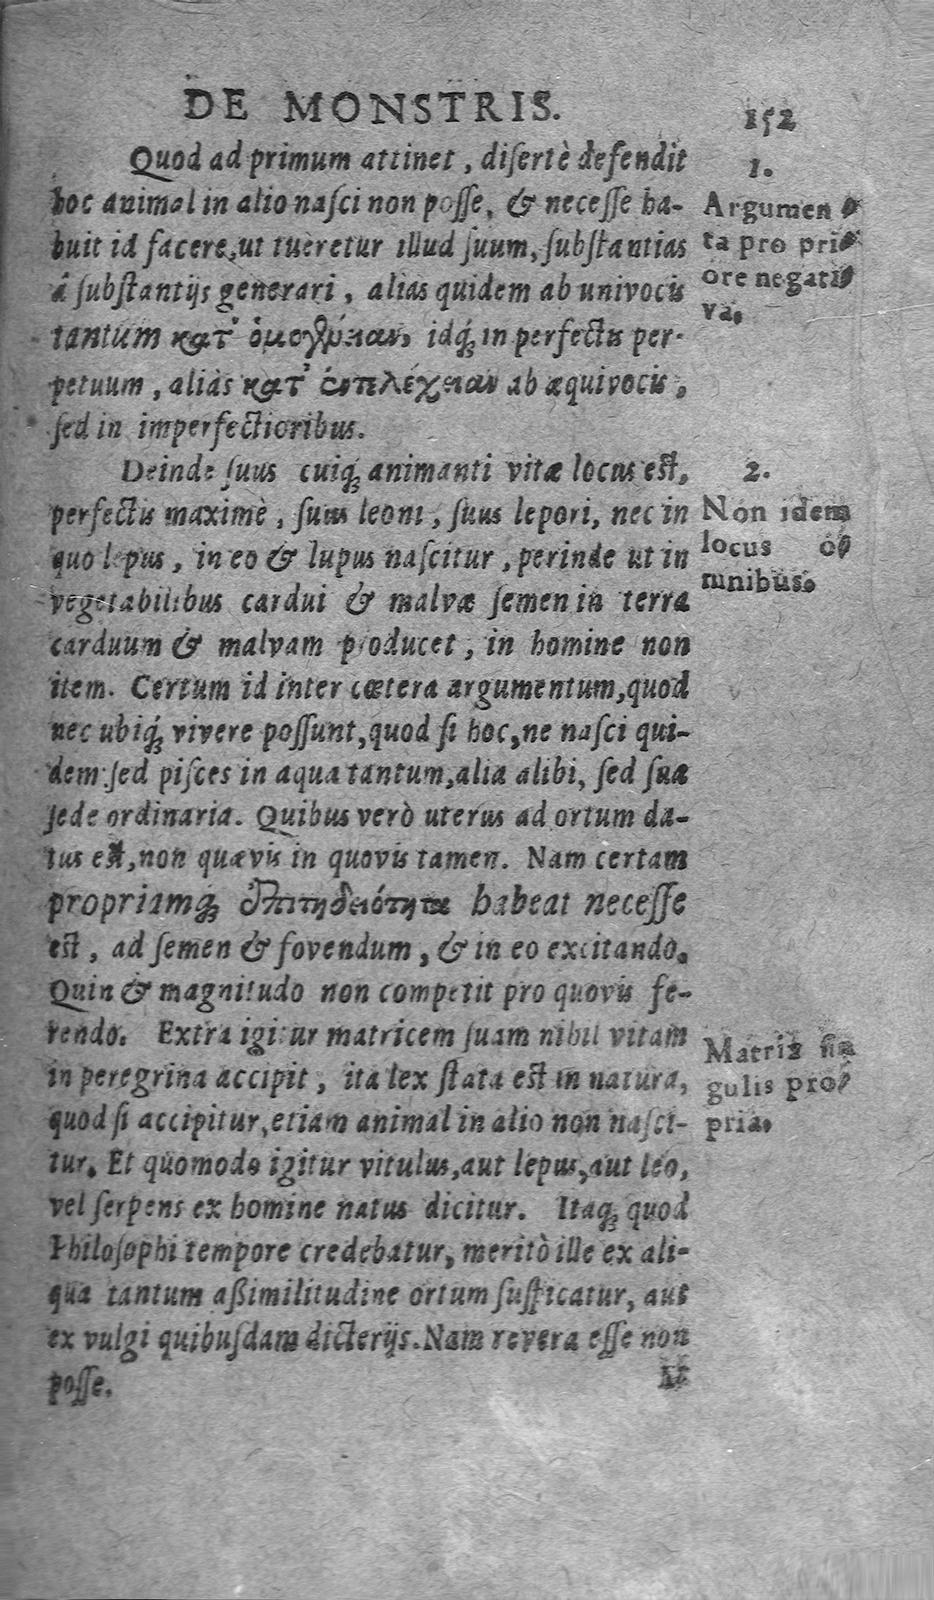 DE MONSTRIS.
152
Quod ad primum attinet, disertè defendit
hoc animal in alio nasci non posse, & necesse ha-
buit id facere, ut tueretur illud suum, substantias
â substantijs generari, alias quidem ab univocis
tantum κατ' idq́; in perfectis per-
petuum, aliàs κατ' ἐντελέχειαν ab æquivocis,
sed in imperfectioribus.
1.
Argumen
ta pro pri
ore negati
va.
Deinde suus cuiq; animanti vitæ locus est,
perfectis maximè, suus leoni, suus lepori, nec in
quo lepus, in eo & lupus nascitur, perinde ut in
vegetabilibus cardui & malvæ semen in terra
carduum & malvam producet, in homine non
item. Certum id inter cœtera argumentum, quod
nec ubiq́; vivere possunt, quod si hoc, ne nasci qui-
dem: sed pisces in aqua tantum, alia alibi, sed sua
sede ordinaria. Quibus verò uterus ad ortum da-
tus est, non quævis in quovis tamen. Nam certam
propriamq; ἐπιτηδειότητα habeat necesse
est, ad semen & fovendum, & in eo excitando.
Quin & magnitudo non competit pro quovis fe-
rendo. Extra igitur matricem suam nihil vitam
in peregrina accipit, ita lex stata est in natura,
quod si accipitur, etiam animal in alio non nasci-
tur. Et quomodo igitur vitulus, aut lepus, aut leo,
vel serpens ex homine natus dicitur. Itaq; quod
Philosophi tempore credebatur, meritò ille ex ali-
qua tantum aßimilitudine ortum suspicatur, aut
ex vulgi quibusdam dicterijs. Nam revera esse non
posse.
2.
Non idem
locus o
mnibus.
Matrix sin
gulis pro
pria.